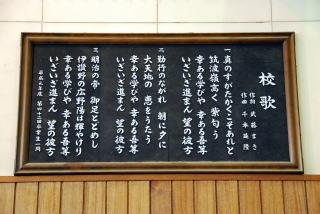 校歌
作詞 武藤まき
作曲 千本延隆
一、真のすがたかくこそあれと
筑波嶺高く 紫匂う
幸ある学びや 幸ある吾等
いざいざ進まん 望の彼方
二、勤行のながれ 朝に夕に
大天地の 恵をうたう
幸ある学びや 幸ある吾等
いざいざ進まん 望の彼方
三、明治の帝 御足とどめし
伊讃野の広野陽は輝やけり
幸ある学びや 幸ある吾等
いざいざ進まん 望の彼方
平成元年度 第四十二回卒業生一同